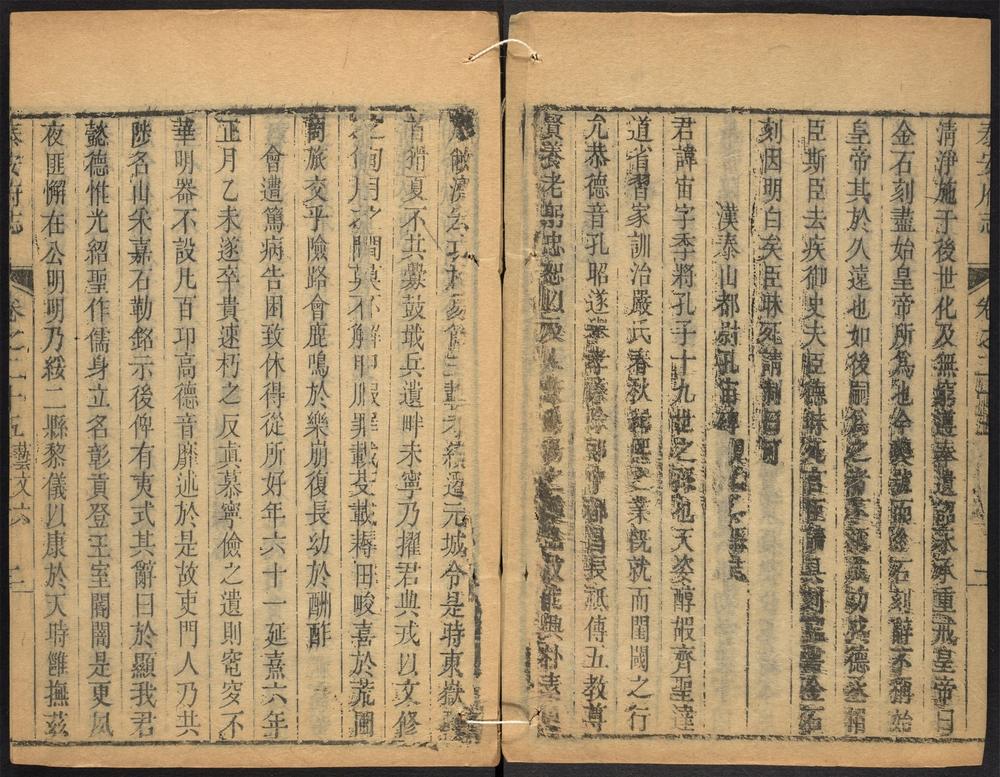 泰安府志 卷之二
清淨施于後世化及無窮遵奉遺詔永承重戒皇帝曰
金石刻盡始皇帝所爲也今襲號而金石刻辭不稱始
皇帝其於久遠也如後嗣爲之者不稱成功盛德丞相
臣斯臣去疾御史夫臣德昧死言臣請具刻詔書金石
刻因明白矣臣昧死請制曰可
漢泰山都尉孔宙碑
君諱宙字季將孔子十九世之孫也天姿醇嘏齊聖達
道省習家訓治嚴氏春秋緝熙之業既就而閨閾之行
允恭德音孔昭遂舉孝廉除郎中都昌長祗傳五教尊
賢養老躬忠恕以及
元城令是時東嶽
首猾夏不共釁鼓戢兵遺畔未寧乃擢君典戎以文修
之旬月之間莫不解甲服罪載芟載耨田畯喜於荒圃
商旅交乎險路會鹿鳴於樂崩復長幼於酬酢
會遭篤病告困致休得從所好年六十一延熹六年
正月乙未遂卒貴速朽之反真慕寧儉之遺則窀穸不
華明器不設凡百卬高德音靡述於是故吏門人乃共
陟名山采嘉石勒銘示後俾有夷式其辭曰於顯我君
懿德惟光紹聖作儒身立名彰貢登王室閽闇是更夙
夜匪懈在公明明乃綏二縣黎儀以康於天時雖撫茲
泰安府志 卷之二十五藝文六 二